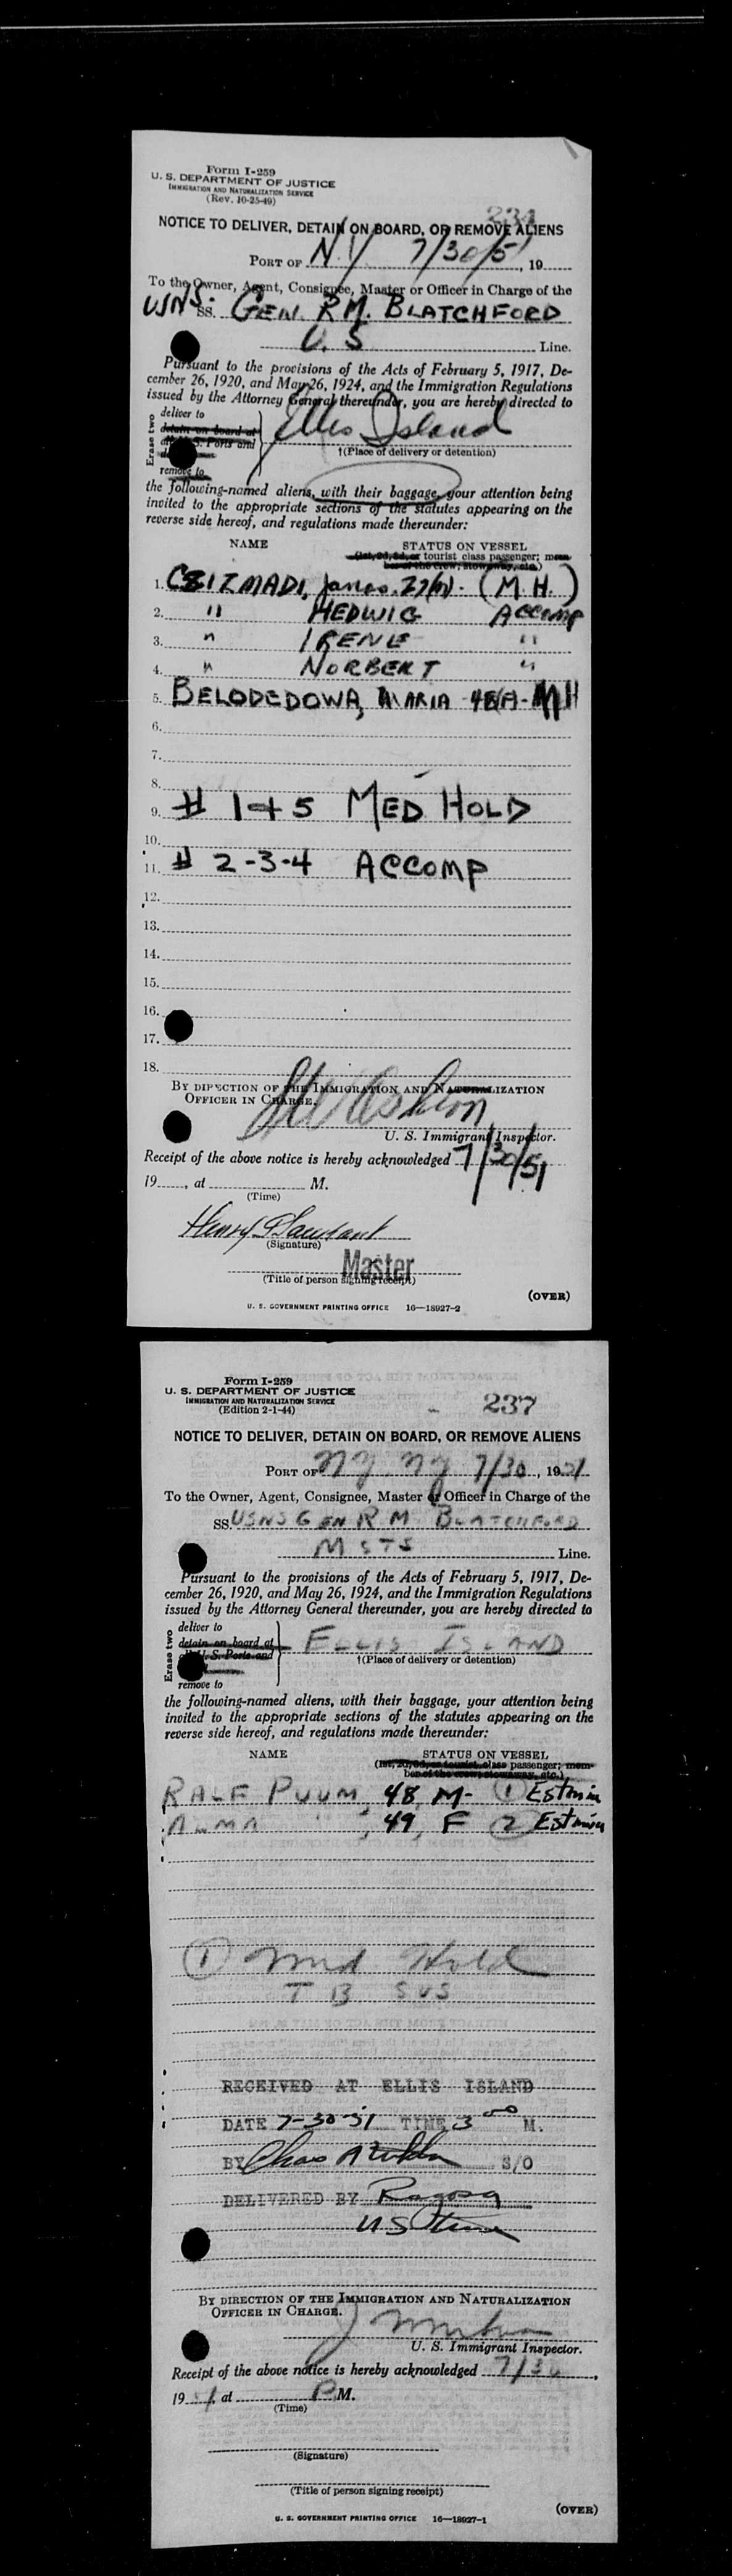 Form I-259
U. S. DEPARTMENT OF JUSTICE
IMMIGRATION AND NATURALIZATION SERVICE
(Rev. 10-25-49)
234
NOTICE TO DELIVER, DETAIN ON BOARD, OR REMOVE ALIENS
PORT OF N.Y 7/30/51, 19
To the Owner, Agent, Consignee, Master or Officer in Charge of the
USNS. SS. GEN. R.M. BLATCHFORD
U.S Line.
Pursuant to the provisions of the Acts of February 5, 1917, De-
cember 26, 1920, and May 26, 1924, and the Immigration Regulations
issued by the Attorney General thereunder, you are hereby directed to
Erase two
deliver to
detain on board at
S. Ports and
remove to
Ellis Island
†(Place of delivery or detention)
the following-named aliens, with their baggage, your attention being
invited to the appropriate sections of the statutes appearing on the
reverse side hereof, and regulations made thereunder:
NAME STATUS ON VESSEL
(1st, 2d, 3d, or tourist class passenger; mem-
ber of the crew, stowaway, etc.)
1. CSIZMADI, Janos. 27(M). (M.H.)
2. " HEDWIG ACCOMP
3. " IRENE "
4. " NORBERT "
5. BELODEDOWA, MARIA MH
6.
7.
8.
9. # 1+5 MED HOLD
10.
11. # 2-3-4 ACCOMP
12.
13.
14.
15.
16.
17.
18.
BY DIRECTION OF THE IMMIGRATION AND NATURALIZATION
OFFICER IN CHARGE.
U. S. Immigrant Inspector.
Receipt of the above notice is hereby acknowledged 7/30/51
19, at M.
(Time)
Henry
(Signature)
Master
(Title of person signing receipt)
(OVER)
U. S. GOVERNMENT PRINTING OFFICE 16—18927-2
Form I-259
U. S. DEPARTMENT OF JUSTICE
IMMIGRATION AND NATURALIZATION SERVICE
(Edition 2-1-44)
237
NOTICE TO DELIVER, DETAIN ON BOARD, OR REMOVE ALIENS
PORT OF NY NY 7/30, 1951
To the Owner, Agent, Consignee, Master or Officer in Charge of the
SS. USNS GEN R M BLATCHFORD
MSTS Line.
Pursuant to the provisions of the Acts of February 5, 1917, De-
cember 26, 1920, and May 26, 1924, and the Immigration Regulations
issued by the Attorney General thereunder, you are hereby directed to
Erase two
deliver to
detain on board at
all U. S. Ports and
remove to
ELLIS ISLAND
†(Place of delivery or detention)
the following-named aliens, with their baggage, your attention being
invited to the appropriate sections of the statutes appearing on the
reverse side hereof, and regulations made thereunder:
NAME STATUS ON VESSEL
(1st, 2d, 3d, or tourist class passenger; mem-
ber of the crew, stowaway, etc.)
RALF PUUM, 48 M- (1) Estonia
ALMA " , 49, F (2) Estonia
(1) Med Hold
TB SUS
RECEIVED AT ELLIS ISLAND
DATE 7-30-51 TIME 3 00 M.
BY Chas S/O
DELIVERED BY Ragosa
US
BY DIRECTION OF THE IMMIGRATION AND NATURALIZATION
OFFICER IN CHARGE.
U. S. Immigrant Inspector.
Receipt of the above notice is hereby acknowledged 7/30,
1951, at P M.
(Time)
(Signature)
(Title of person signing receipt)
(OVER)
U. S. GOVERNMENT PRINTING OFFICE 16—18927-1